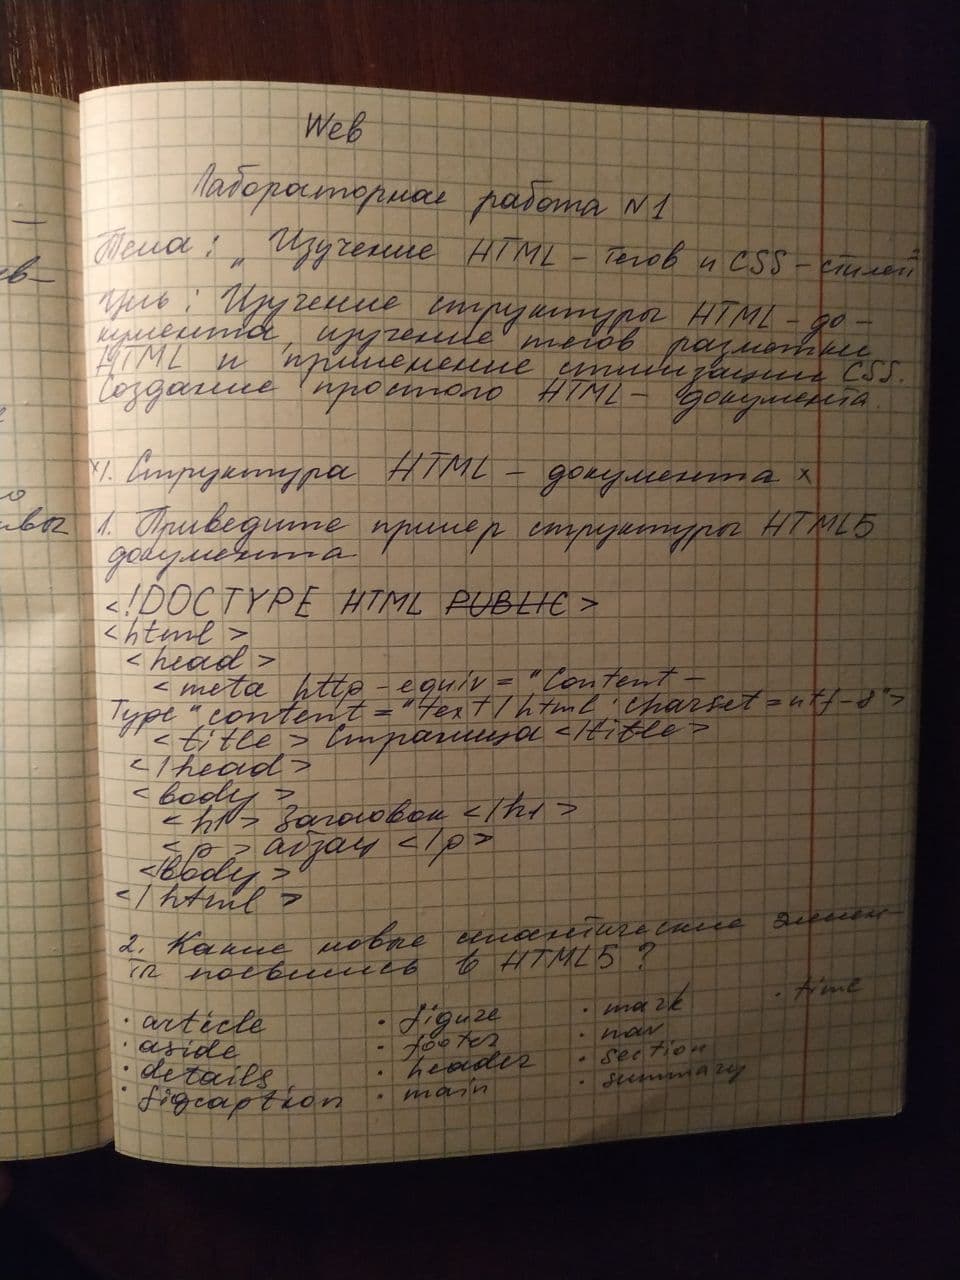 Web
Лабораторная работа N1
Тема: „Изучение HTML-тегов и CSS-стилей"
Цель: Изучение структуры HTML-до-
кумента, изучение тегов разметки
HTML и применение стилизации CSS.
Создание простого HTML-документа.
x1. Структура HTML-документа x
1. Приведите пример структуры HTML5
документа
<!DOCTYPE HTML PUBLIC>
<html>
<head>
<meta http-equiv="Content-
Type" content="text/html; charset=utf-8">
<title> Страница </title>
</head>
<body>
<h1> Заголовок </h1>
<p> абзац </p>
<body>
</html>
2. Какие новые семантические элемен-
ты появились в HTML5?
· article · figure · mark · time
· aside · footer · nav
· details · header · section
· figcaption · main · summary
ев-
овы